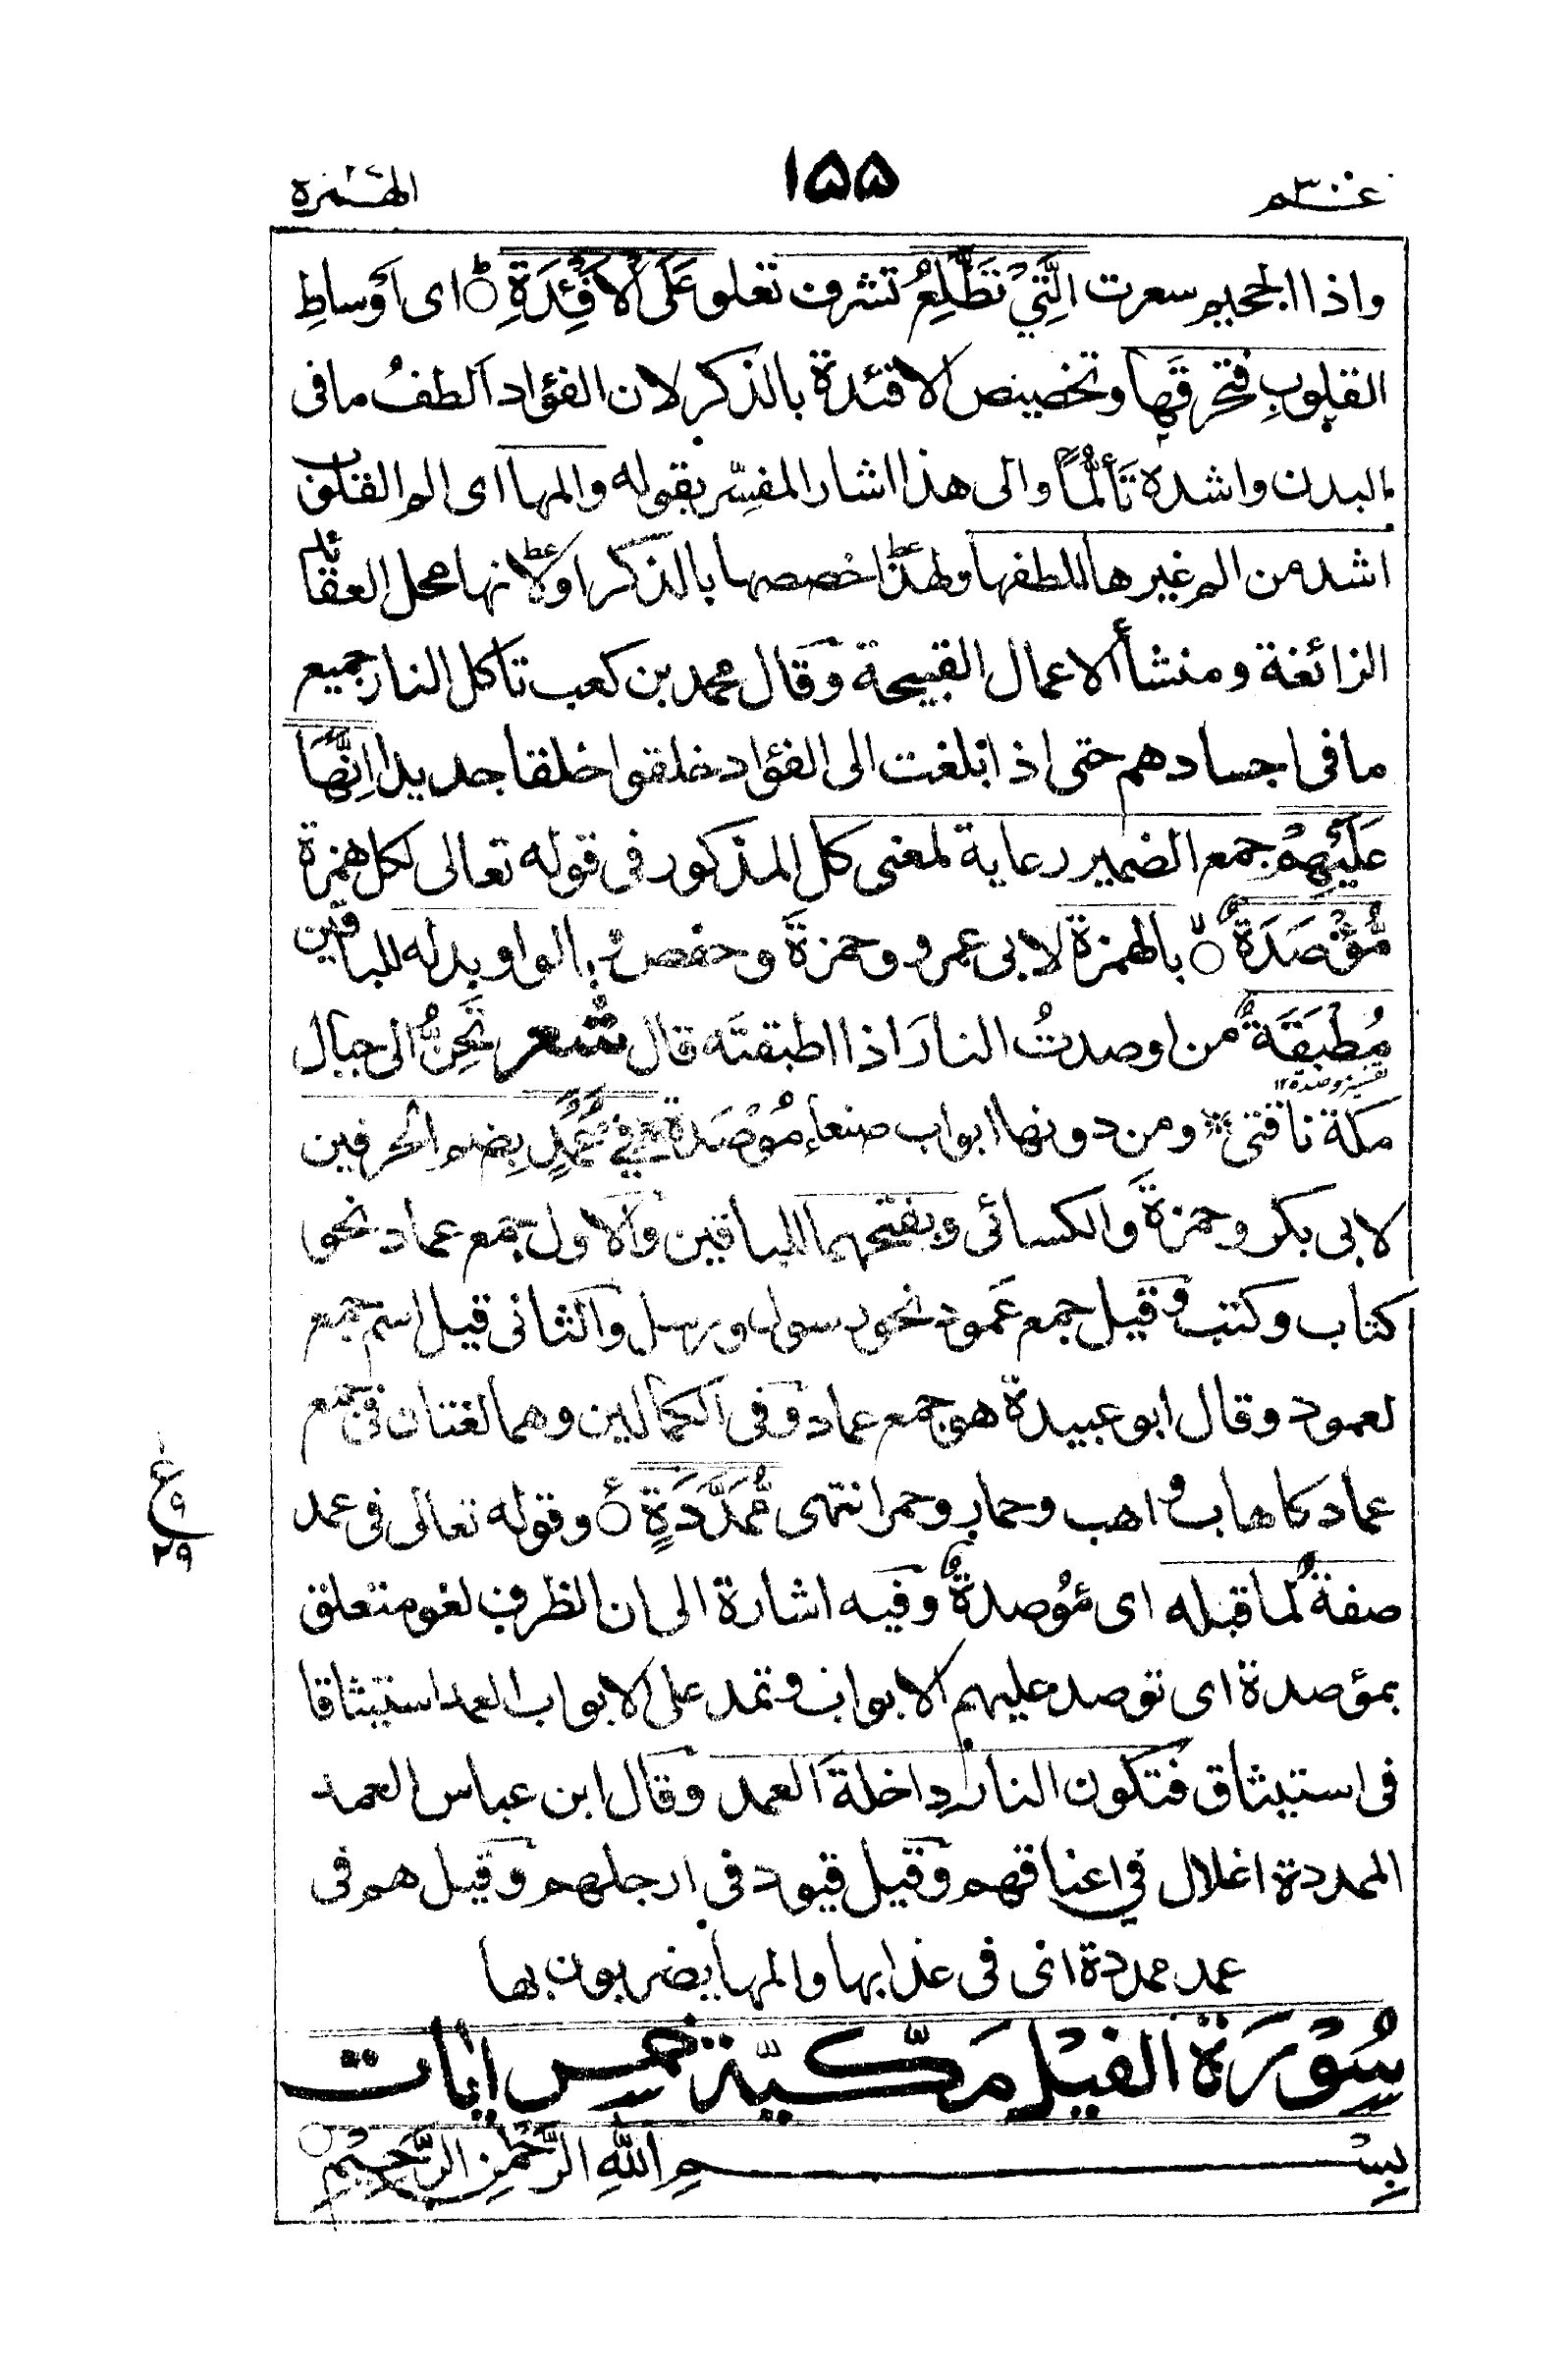 عم ٣٠
١٥٥
الهمزة
واذا الجحيم سعرت الَّتِيْ تَطَّلِعُ تشرف تعلو عَلَى الْاَفْئِدَةِ ○ اى اَوْساطِ
القلوبِ فتحرقَها وتخصيص الافئدة بالذكر لان الفؤاد اَلطفُ ما فى
البدن واشده تَأَلُّماً والى هذا اشار المفسّر بقوله والمها اى الم القلوب
اشد من الم غيرها للطفها ولهذا خصصها بالذكر اولانها محل العقائد
الزائغة ومنشأ الاعمال القبيحة وقال محمد بن كعب تاكل النار جميع
ما فى اجسادهم حتى اذا بلغت الى الفؤاد خلقوا خلقا جديدا اِنَّهَا
عَلَيْهِمْ جمع الضمير رعاية لمعنى كل المذكور فى قوله تعالى لكل همزة
مُّؤْصَدَةٌ ○ بالهمزة لابى عمرو وحمزةَ وحفص وبالواو بدله للباقين
مُطْبَقَةٌ من اوصدتُ النارَ اذا اطبقتَه قال شعر تَحِنُّ الى جبال
تفسير موصدة ١٢
مكة ناقتى ومن دونها ابواب صنعاء مُوْصَدة فِيْ عُمُدٍ بضم الحرفين
لابى بكر وحمزةَ والكسائى وبفتحهما للباقين والاول جمع عماد نحو
كتاب وكتب وقيل جمع عَمود نحو رسول ورسل والثانى قيل اسم جمع
لعمود وقال ابو عبيدة هو جمع عماد وفى الكمالين وهما لغتان فى جمع
عماد كاهاب واهب وحمار وحمر انتهى مُّمَدَّدَةٍ ○ وقوله تعالى فى عمد
صفةٌ لما قبله اى مُؤصدةٌ وفيه اشارة الى ان الظرف لغو متعلق
بمؤصدة اى توصد عليهم الابواب وتمد على الابواب العمد استيثاقا
فى استيثاق فتكون النار داخلة العمد وقال ابن عباس العمد
الممددة اغلال فى اعناقهم وقيل قيود فى ارجلهم وقيل هم فى
عمد ممددة اى فى عذابها والمها يضربون بها
سُوْرَةُ الفيل مَكّيّة خمس اٰيات
بِسْمِ اللّٰهِ الرَّحْمٰنِ الرَّحِيْمِ ○
ع
٩
٢٩